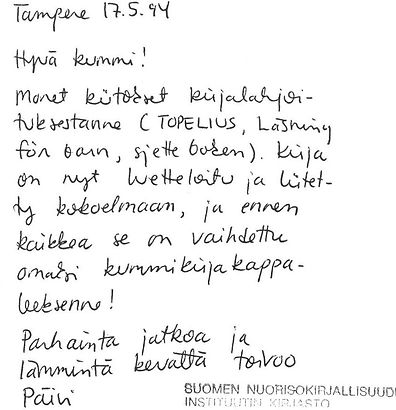 Tampere 17.5.94
Hyvä kummi!
Monet kiitokset kirjalahjoi-
tuksestanne (TOPELIUS, Läsning
för barn, sjette boken). Kirja
on nyt luetteloitu ja liitet-
ty kokoelmaan, ja ennen
kaikkea se on vaihdettu
omaksi kummikirjakappa-
leeksenne!
Parhainta jatkoa ja
lämmintä kevättä toivoo
Päivi
SUOMEN NUORISOKIRJALLISUUD
INSTITUUTIN KIRJASTO